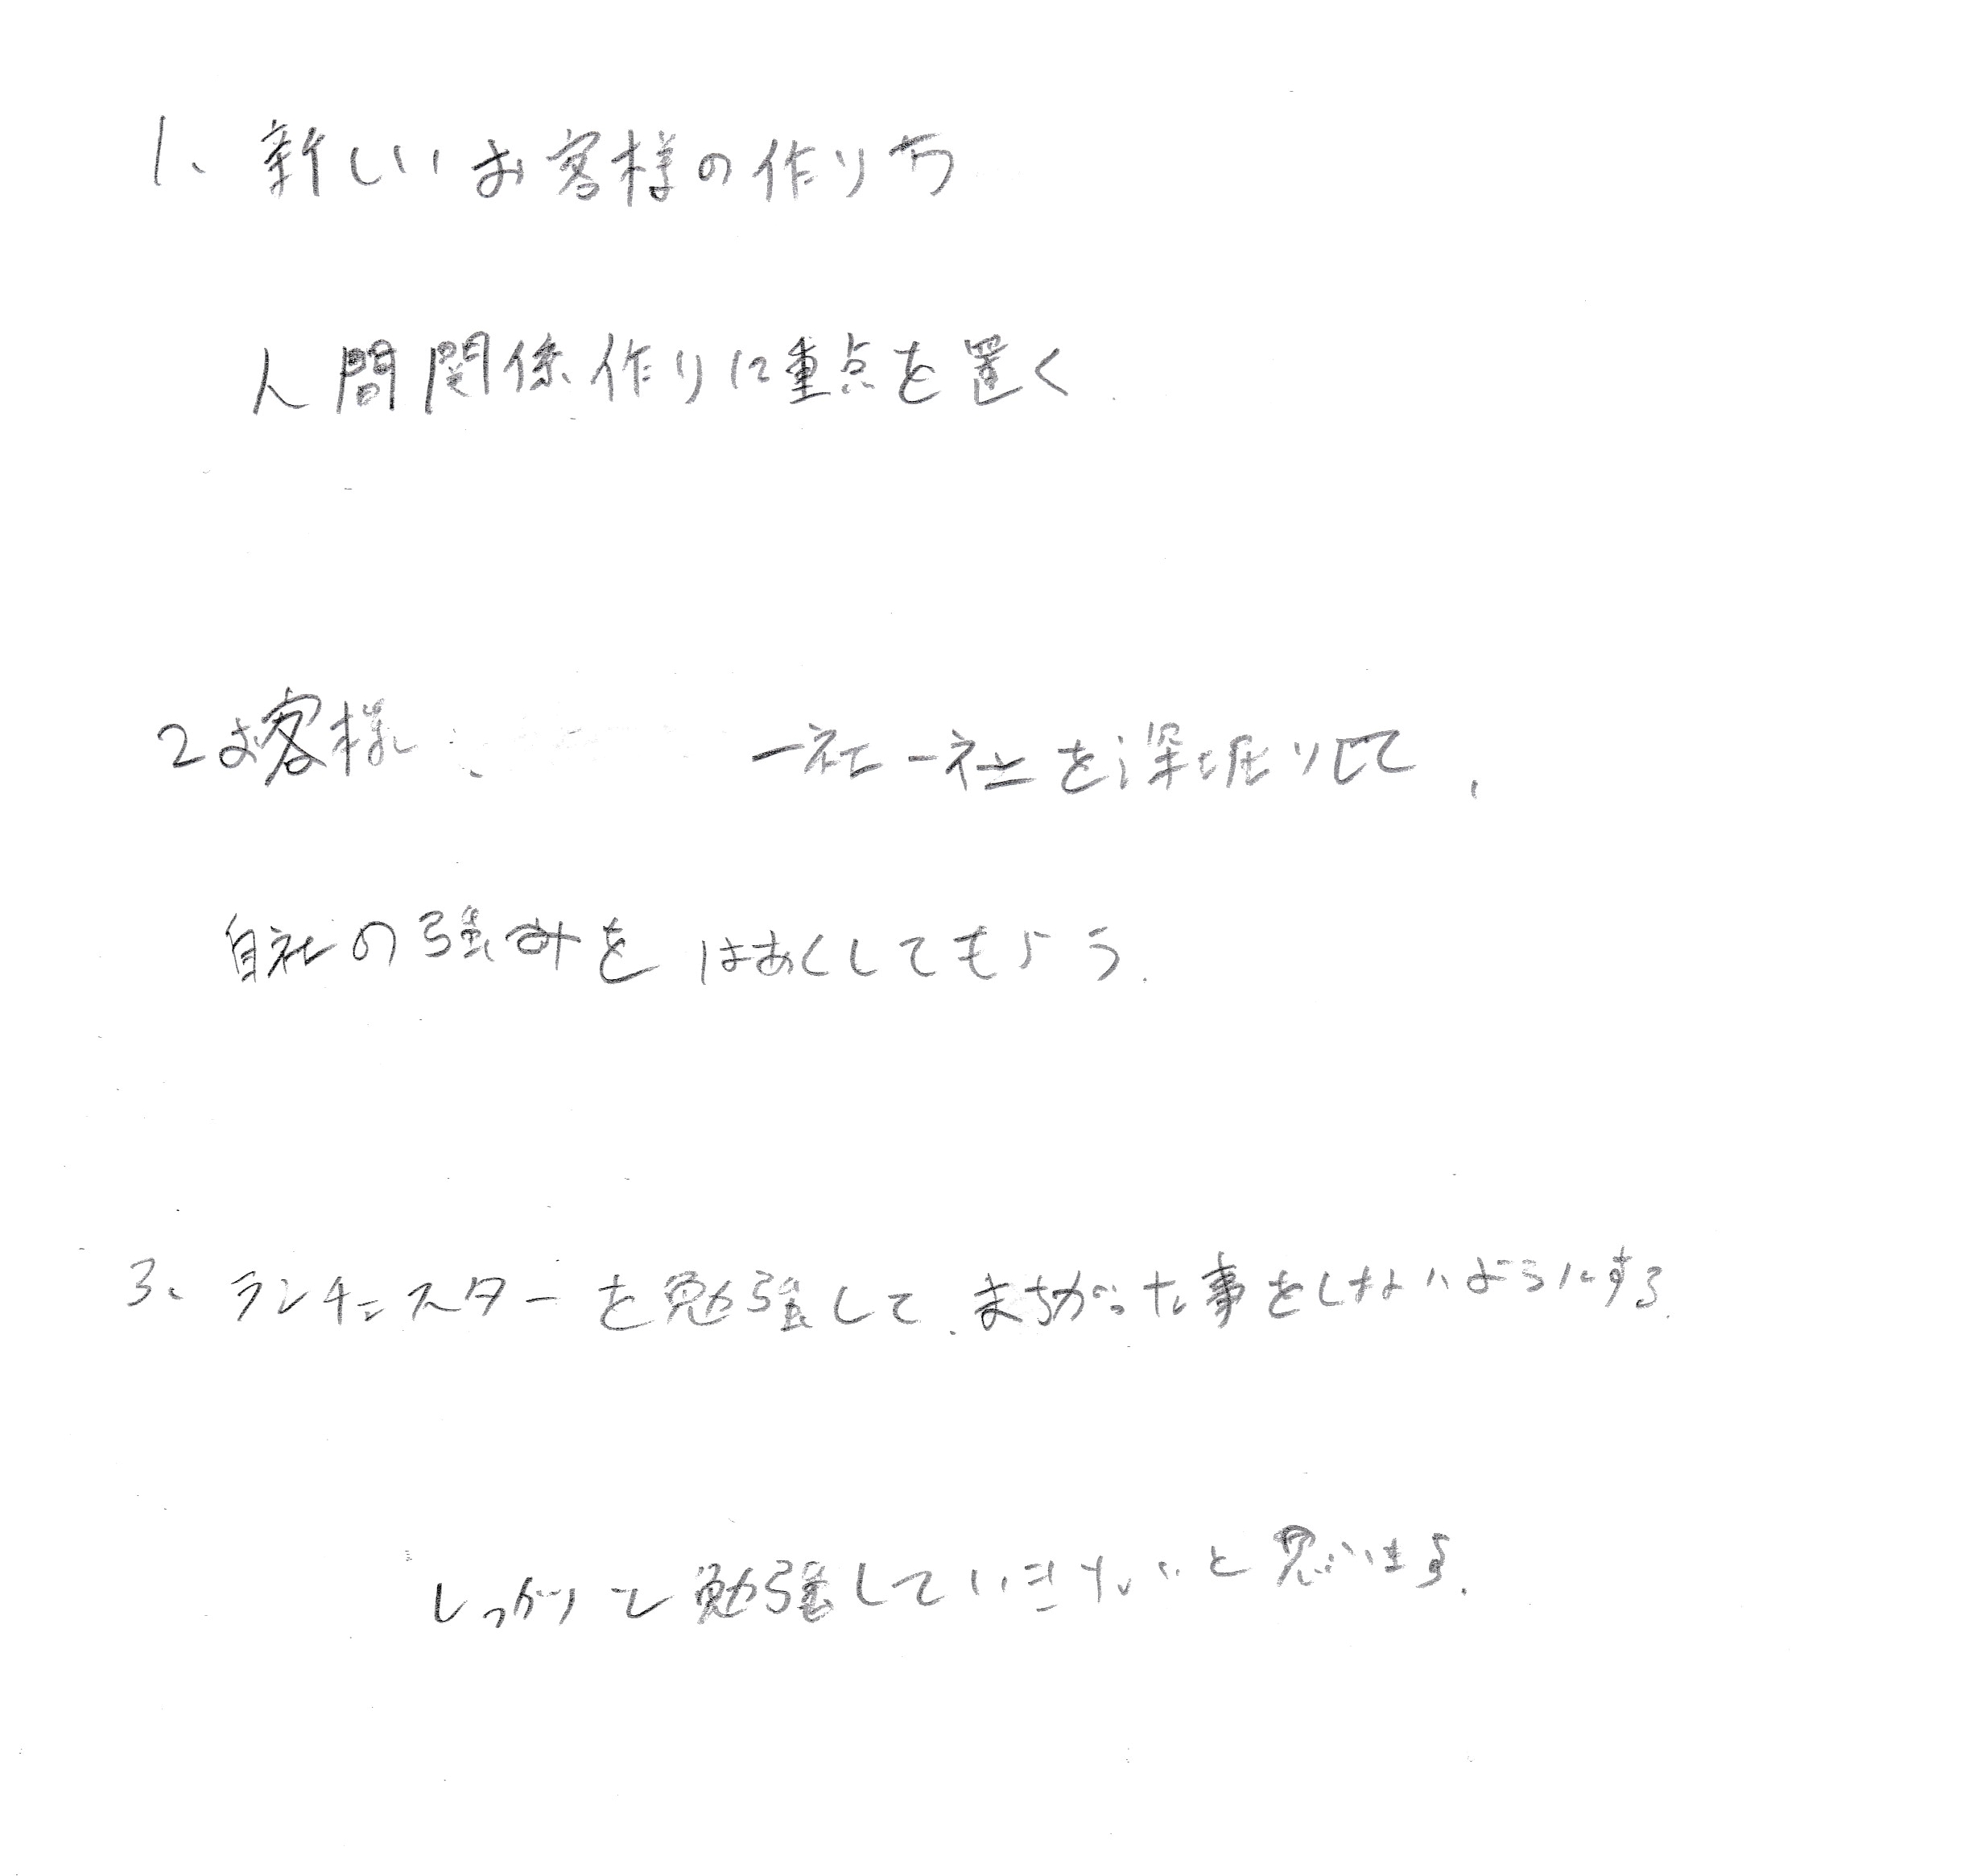 1、新しいお客様の作り方
人間関係作りに重点を置く
2お客様、一社一社を深堀りして、
自社の強みをはあくしてもらう.
3、ランチェスターを勉強して、まちがった事をしないようにする.
しっかりと勉強していきたいと思います.